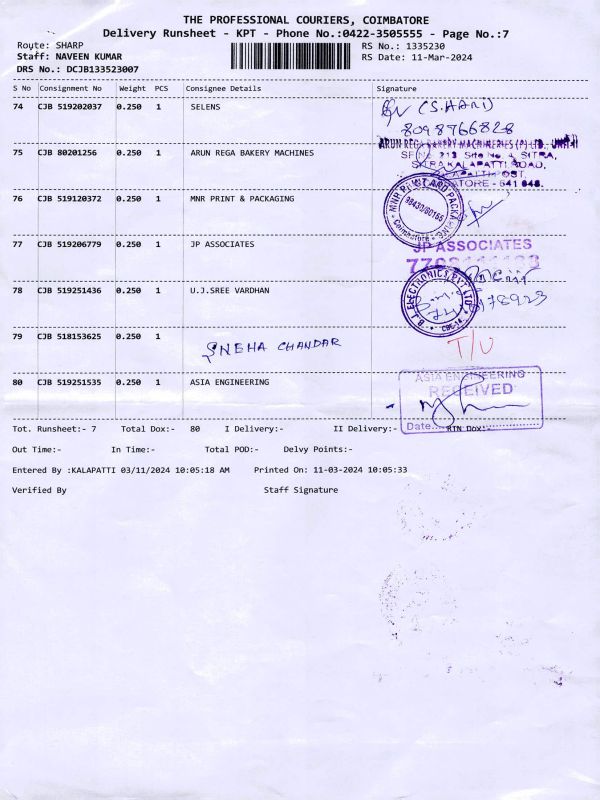 THE PROFESSIONAL COURIERS, COIMBATORE
Delivery Runsheet - KPT - Phone No.:0422-3505555 - Page No.:7
Route: SHARP
RS No.: 1335230
Staff: NAVEEN KUMAR
RS Date: 11-Mar-2024
DRS No.: DCJB133523007
S No Consignment No Weight PCS Consignee Details Signature
74 CJB 519202037 0.250 1 SELENS (S.HARI)
8098766828
75 CJB 80201256 0.250 1 ARUN REGA BAKERY MACHINES
ARUN REGA BAKERY MACHINERIES (P) LTD., UNIT-II
SF No. 213 Site No 4 SITRA,
KALAPATTI ROAD,
KALAPATTI POST,
COIMBATORE - 641 048.
76 CJB 519120372 0.250 1 MNR PRINT & PACKAGING
MNR PRINT AND PACKAGING
Coimbatore
77 CJB 519206779 0.250 1 JP ASSOCIATES
JP ASSOCIATES
78 CJB 519251436 0.250 1 U.J.SREE VARDHAN
ELECTRONICS PVT LTD
CBE-14
79 CJB 518153625 0.250 1 SNEHA CHANDAR T/U
80 CJB 519251535 0.250 1 ASIA ENGINEERING
ASIA ENGINEERING
RECEIVED
Date
Tot. Runsheet:- 7 Total Dox:- 80 I Delivery:- II Delivery:- RTN Dox:-
Out Time:- In Time:- Total POD:- Delvy Points:-
Entered By :KALAPATTI 03/11/2024 10:05:18 AM Printed On: 11-03-2024 10:05:33
Verified By Staff Signature